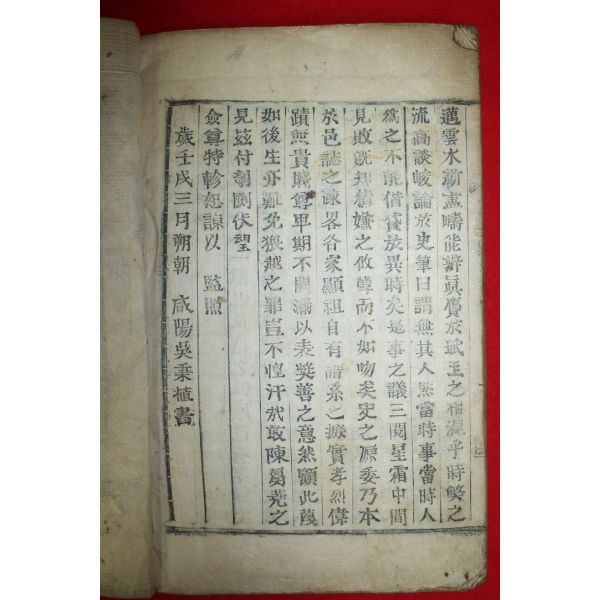 邁雲水漸盡疇能辨眞贋於珷玉之相混乎時幣之
流高談峻論於史筆曰謂無其人烝當時事當時人
爲之不能借貸於異時矣是事之議三閱星霜中間
見敗旣知猜嫌之攸韓而不如吻矣史之源委乃本
於邑誌之諫畧各家顯祖自有譜系之摭實孝烈偉
蹟無貴賤尊卑期不闕漏以表奬善之意然顧此蔑
如後生亦難免猥越之罪豈不惶汗哉敢陳蒭蕘之
見玆付剞劂伏望
僉尊特軫恕諒以 監照
歲壬戌三月朔朝 咸陽吳秉植書